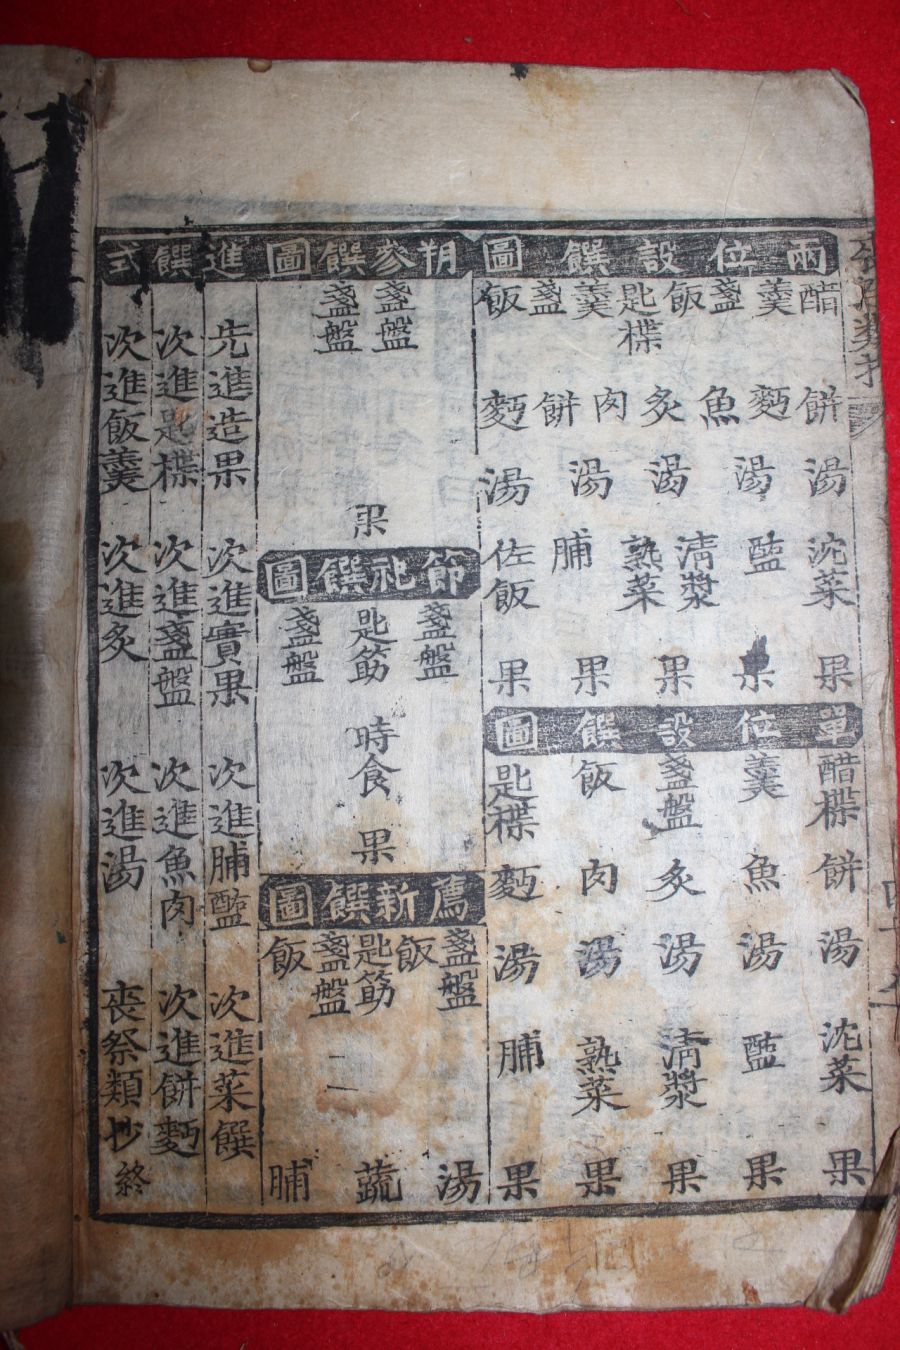 兩位設饌圖
醋 羹 盞 飯 匙楪 羹 盞 飯
餅 麪 魚 炙 肉 餅 麪
湯 湯 湯 湯 湯
沈菜 醢 淸漿 熟菜 脯 佐飯
果 果 果 果 果
單位設饌圖
醋楪 羹 盞盤 飯 匙楪
餅 魚 炙 肉 麪
湯 湯 湯 湯 湯
沈菜 醢 淸漿 熟菜 脯
果 果 果 果 果
朔參饌圖
盞盤 盞盤
果
節祀饌圖
盞盤 匙筯 盞盤
時食
果
薦新饌圖
盞盤 飯 匙筯 盞盤 飯
湯 蔬 脯
進饌式
先進造果 次進實果 次進脯醢 次進菜饌
次進匙楪 次進盞盤 次進魚肉 次進餅麪
次進飯羹 次進炙 次進湯 喪祭類抄終